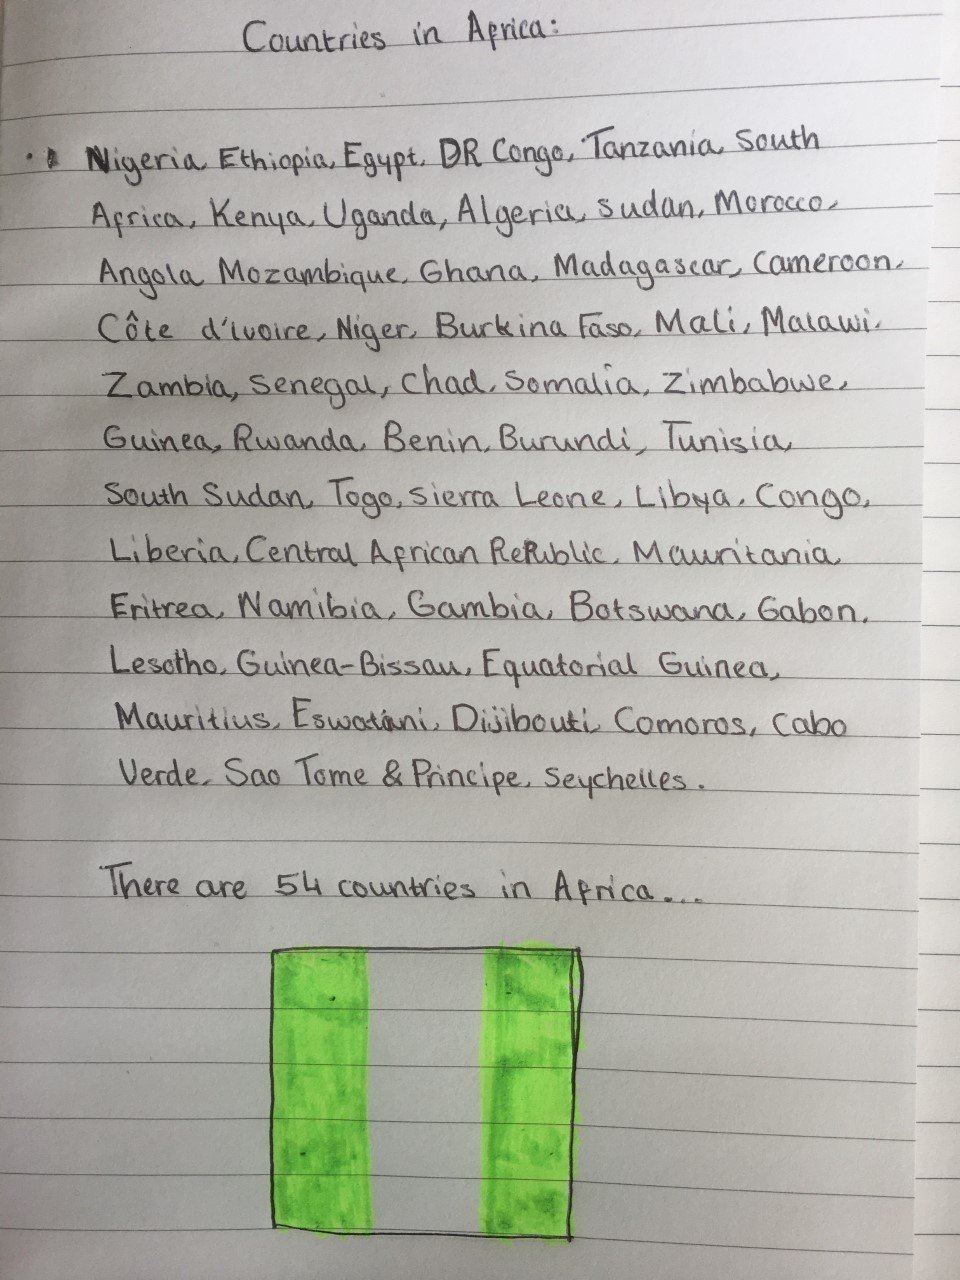 Countries in Africa:
Nigeria, Ethiopia, Egypt, DR Congo, Tanzania, South
Africa, Kenya, Uganda, Algeria, Sudan, Morocco,
Angola, Mozambique, Ghana, Madagascar, Cameroon,
Côte d'Ivoire, Niger, Burkina Faso, Mali, Malawi,
Zambia, Senegal, Chad, Somalia, Zimbabwe,
Guinea, Rwanda, Benin, Burundi, Tunisia,
South Sudan, Togo, Sierra Leone, Libya, Congo,
Liberia, Central African Republic, Mauritania,
Eritrea, Namibia, Gambia, Botswana, Gabon,
Lesotho, Guinea-Bissau, Equatorial Guinea,
Mauritius, Eswatini, Dijibouti, Comoros, Cabo
Verde, Sao Tome & Principe, Seychelles.
There are 54 countries in Africa...